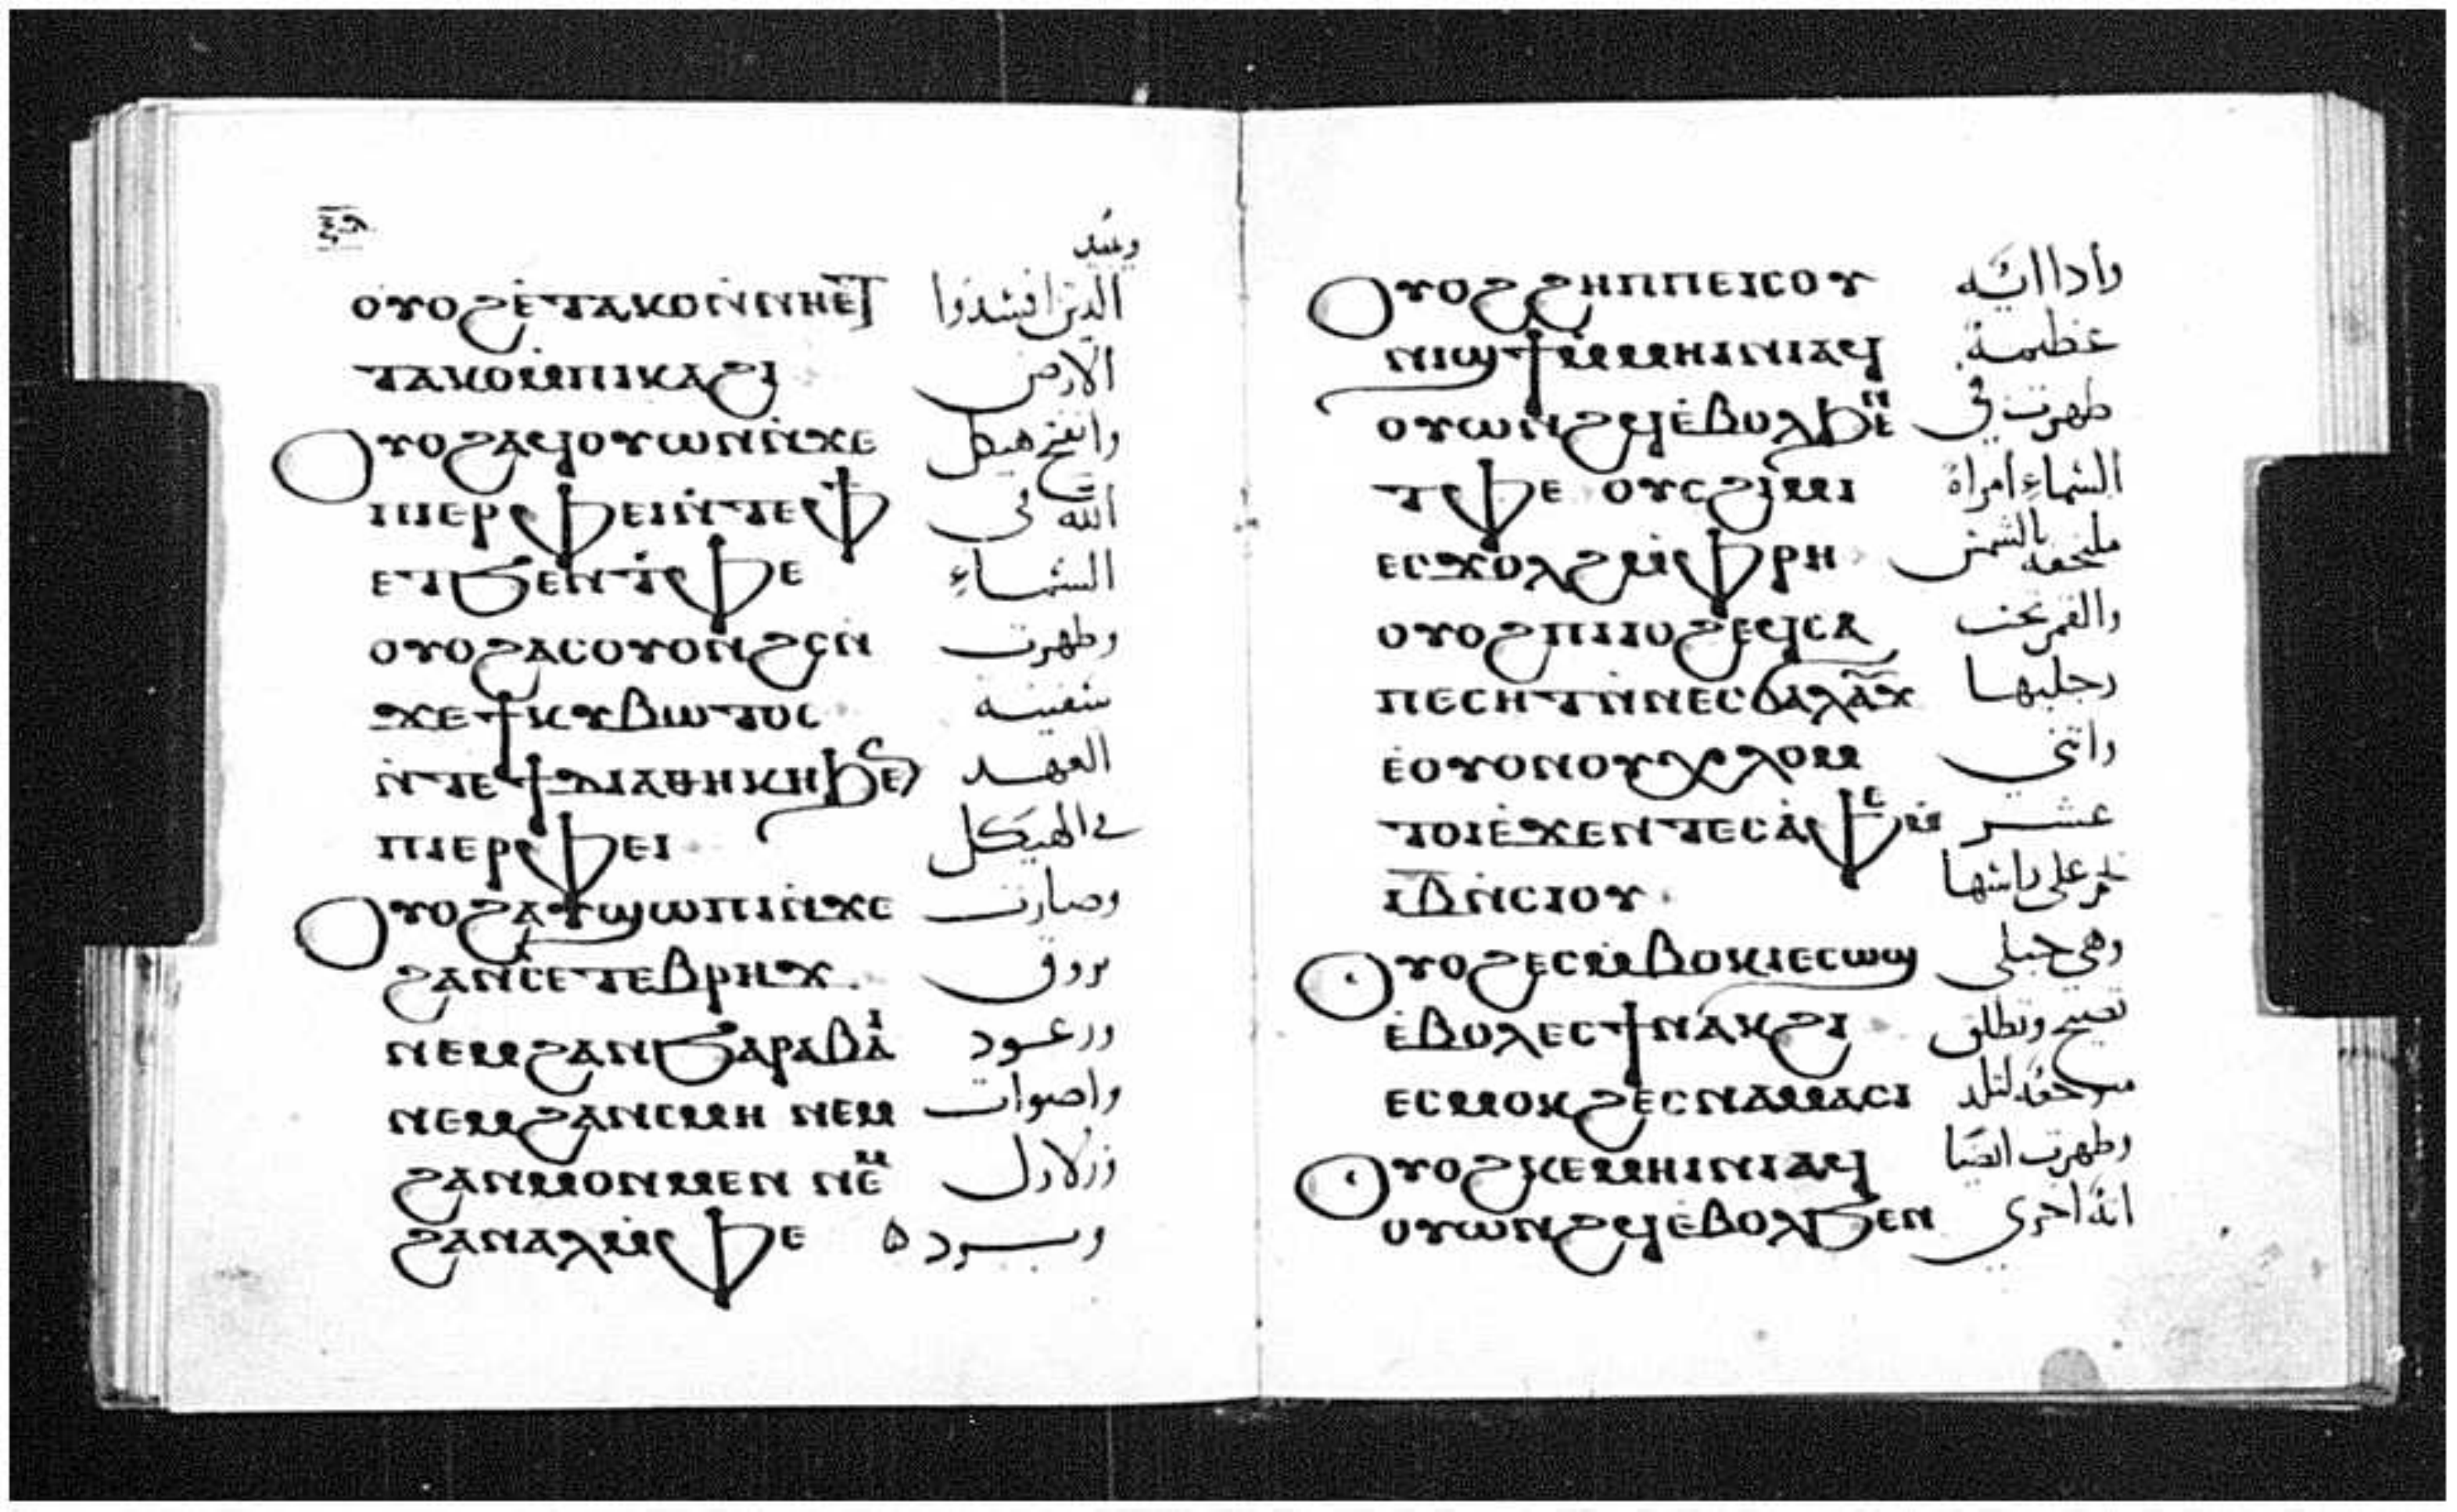 وعبيد
ⲟⲩⲟϩ ⲉ̇ⲧⲁⲕⲟ ⲛ̇ⲛⲏⲉⲧ الذين افسدوا
ⲧⲁⲕⲟ ⲙ̇ⲡⲓⲕⲁϩⲓ الارض
ⲟⲩⲟϩ ⲁϥⲟⲩⲱⲛ ⲛ̇ϫⲉ وانفتح هيكل
ⲡⲓⲉⲣⲫⲉⲓ ⲛ̇ⲧⲉ ⲫϯ الله في
ⲉⲧϧⲉⲛ ⲧ̇ⲫⲉ السماء
ⲟⲩⲟϩ ⲁⲥⲟⲩⲟⲛϩⲥ ⲛ̇ وظهرت
ϫⲉ ϯⲕⲩⲃⲱⲧⲟⲥ سفينة
ⲛ̇ⲧⲉ ϯⲇⲓⲁⲑⲏⲕⲏ ϧⲉⲛ العهد
ⲡⲓⲉⲣⲫⲉⲓ في الهيكل
ⲟⲩⲟϩ ⲁⲩϣⲱⲡⲓ ⲛ̇ϫⲉ وصارت
ϩⲁⲛⲥⲉⲧⲉⲃⲣⲏϫ بروق
ⲛⲉⲙ ϩⲁⲛϧⲁⲣⲁⲃⲁⲓ ورعود
ⲛⲉⲙ ϩⲁⲛⲥⲙⲏ ⲛⲉⲙ واصوات
ϩⲁⲛⲙⲟⲛⲙⲉⲛ ⲛⲉⲙ وزلازل
ϩⲁⲛⲁⲗⲙ̇ⲫⲉ وبرد
ⲟⲩⲟϩ ϩⲏⲡⲡⲉ ⲓⲥ ⲟⲩ واذا اية
ⲛⲓϣϯ ⲙ̇ⲙⲏⲓⲛⲓ ⲁϥ عظيمة
ⲟⲩⲱⲛϩϥ ⲉ̇ⲃⲟⲗ ϧⲉⲛ ظهرت في
ⲧ̇ⲫⲉ ⲟⲩⲥϩⲓⲙⲓ السماء امراة
ⲉⲥϫⲟⲗϩ ⲙ̇ⲫⲣⲏ ملتحفة بالشمس
ⲟⲩⲟϩ ⲡⲓⲓⲟϩ ⲉϥⲥⲁ والقمر تحت
ⲡⲉⲥⲏⲧ ⲛ̇ⲛⲉⲥϭⲁⲗⲁⲩϫ رجليها
ⲉ̇ⲟⲩⲟⲛ ⲟⲩⲭⲗⲟⲙ واثني
ⲧⲟⲓ ⲉ̇ϫⲉⲛ ⲧⲉⲥⲁ̇ⲫⲉ ⲙ̇ عشر
ⲓ̅ⲃ̅ ⲛ̇ⲥⲓⲟⲩ نجم على راسها
ⲟⲩⲟϩ ⲉⲥⲙ̇ⲃⲟⲕⲓ ⲉⲥⲱϣ وهي حبلى
ⲉ̇ⲃⲟⲗ ⲉⲥϯⲛⲁⲕϩⲓ تصيح وتطلق
ⲉⲥⲙⲟⲕϩ ⲉⲥⲛⲁⲙⲁⲥⲓ لتلد
ⲟⲩⲟϩ ⲕⲉⲙⲏⲓⲛⲓ ⲁϥ وظهرت ايضا
ⲟⲩⲱⲛϩϥ ⲉ̇ⲃⲟⲗ ϧⲉⲛ اية اخرى